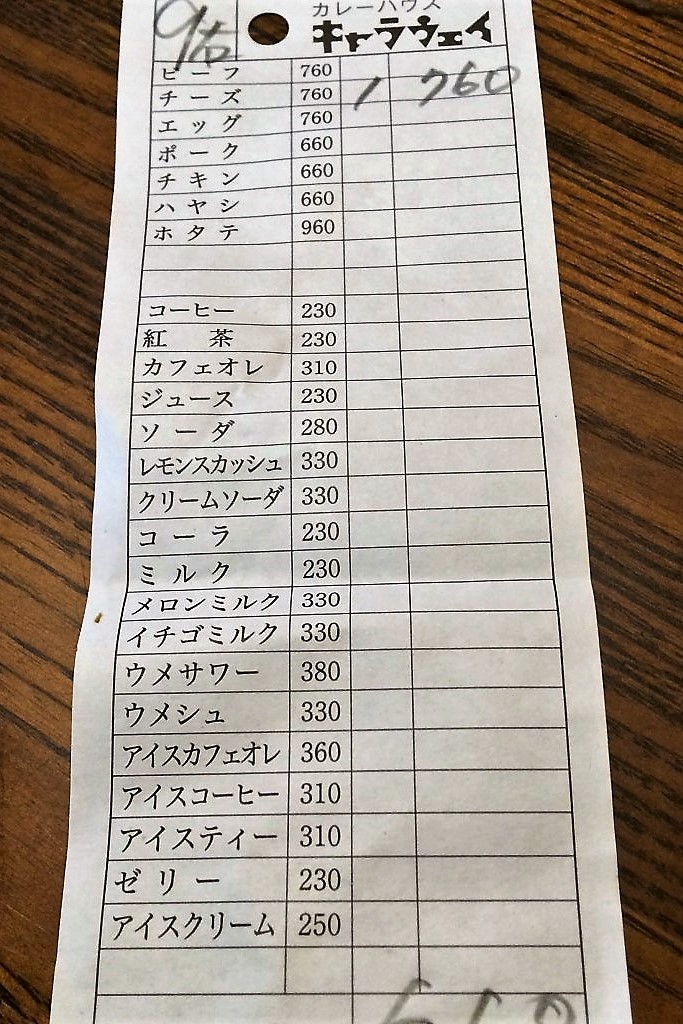 カレーハウス
キャラウェイ
ビーフ 760
チーズ 760 1 760
エッグ 760
ポーク 660
チキン 660
ハヤシ 660
ホタテ 960
コーヒー 230
紅茶 230
カフェオレ 310
ジュース 230
ソーダ 280
レモンスカッシュ 330
クリームソーダ 330
コーラ 230
ミルク 230
メロンミルク 330
イチゴミルク 330
ウメサワー 380
ウメシュ 330
アイスカフェオレ 360
アイスコーヒー 310
アイスティー 310
ゼリー 230
アイスクリーム 250